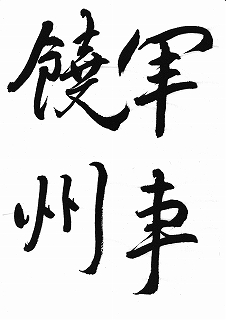 軍事
饒州